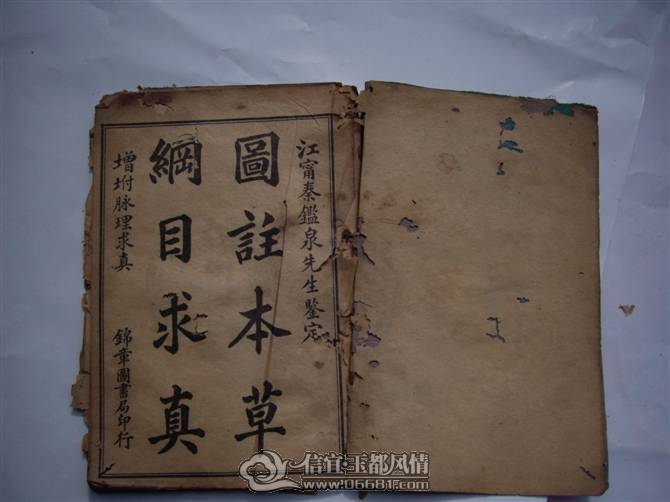 江甯秦鑑泉先生鑒定
圖註本草
綱目求真
增坿脉理求真
錦章圖書局印行
信宜·玉都风情
www.06681.com